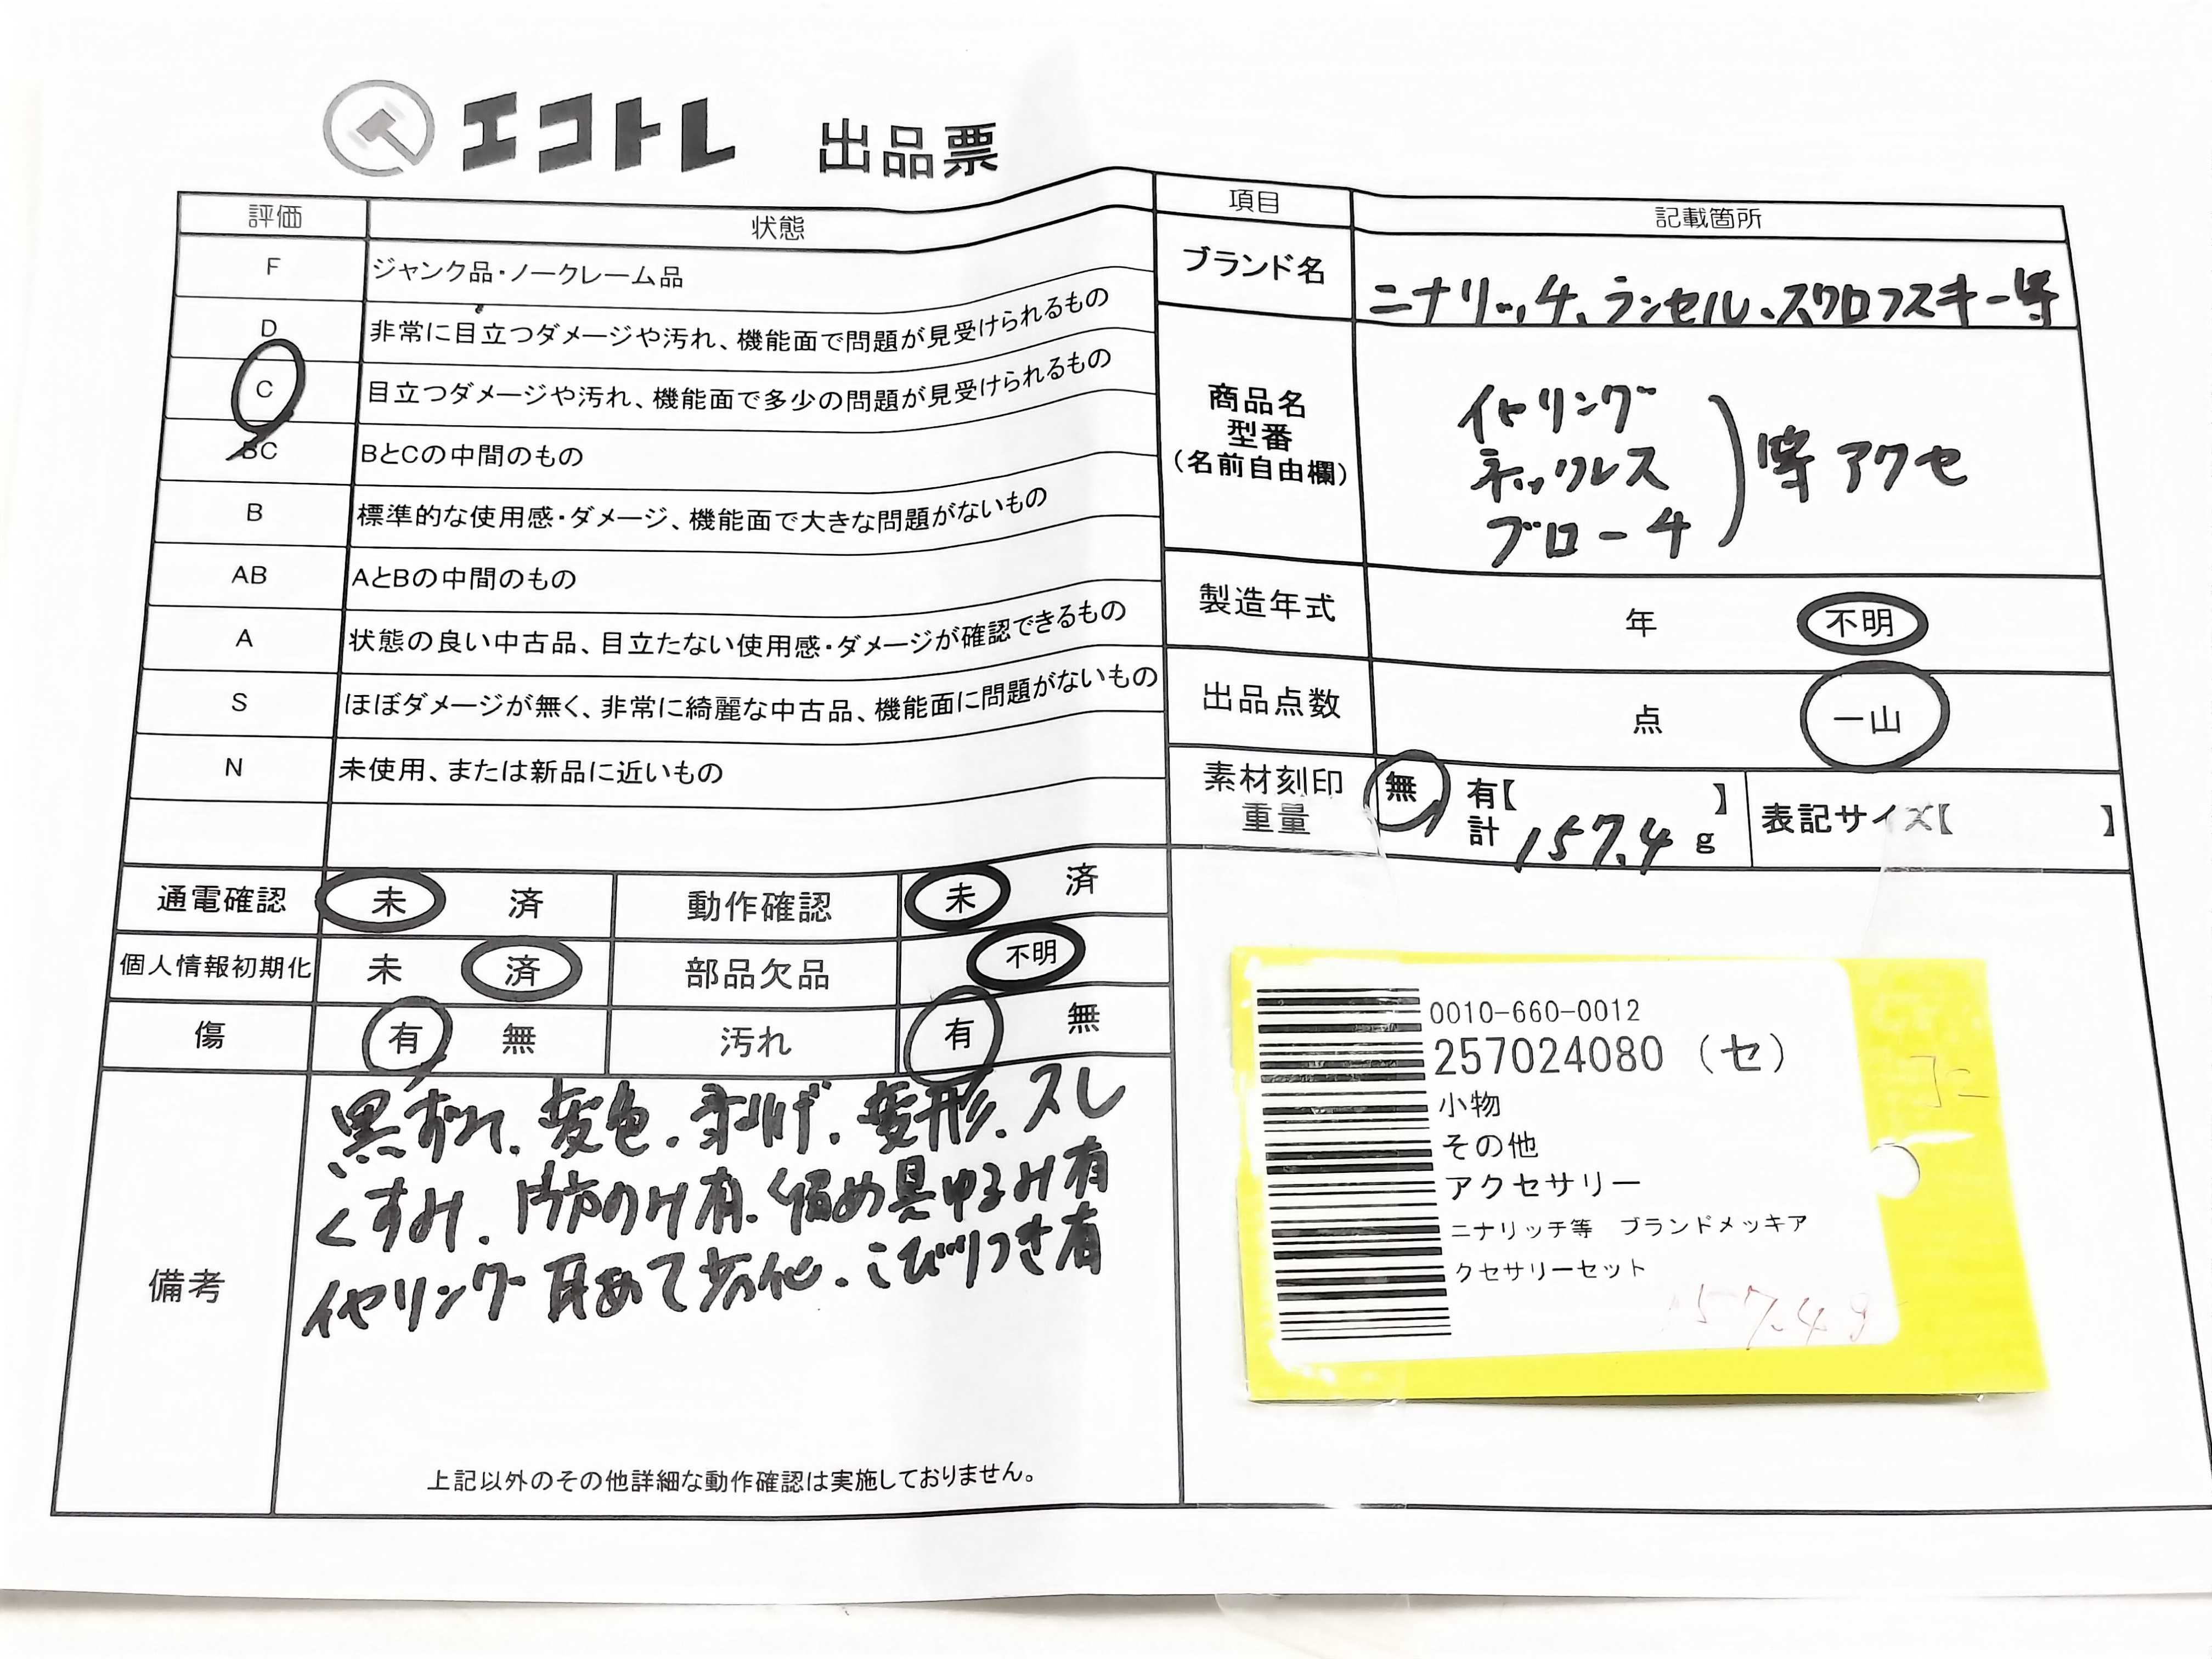 エコトレ 出品票
評価 状態
F ジャンク品・ノークレーム品
D 非常に目立つダメージや汚れ、機能面で問題が見受けられるもの
C 目立つダメージや汚れ、機能面で多少の問題が見受けられるもの
BC BとCの中間のもの
B 標準的な使用感・ダメージ、機能面で大きな問題がないもの
AB AとBの中間のもの
A 状態の良い中古品、目立たない使用感・ダメージが確認できるもの
S ほぼダメージが無く、非常に綺麗な中古品、機能面に問題がないもの
N 未使用、または新品に近いもの
通電確認 未 済 動作確認 未 済
個人情報初期化 未 済 部品欠品 不明
傷 有 無 汚れ 有 無
備考
黒ずみ、変色、剥げ、変形、スレ
くすみ、有、留め具ゆるみ有
イヤリング 劣化、こびりつき有
上記以外のその他詳細な動作確認は実施しておりません。
項目 記載箇所
ブランド名 ニナリッチ、ランセル、スワロフスキー等
商品名
型番
(名前自由欄)
イヤリング
ネックレス
ブローチ
等 アクセ
製造年式 年 不明
出品点数 点 一山
素材刻印 無 有【 】
重量 計 157.4 g
表記サイズ【 】
0010-660-0012
257024080 (セ)
小物
その他
アクセサリー
ニナリッチ等 ブランドメッキア
クセサリーセット
157.4g